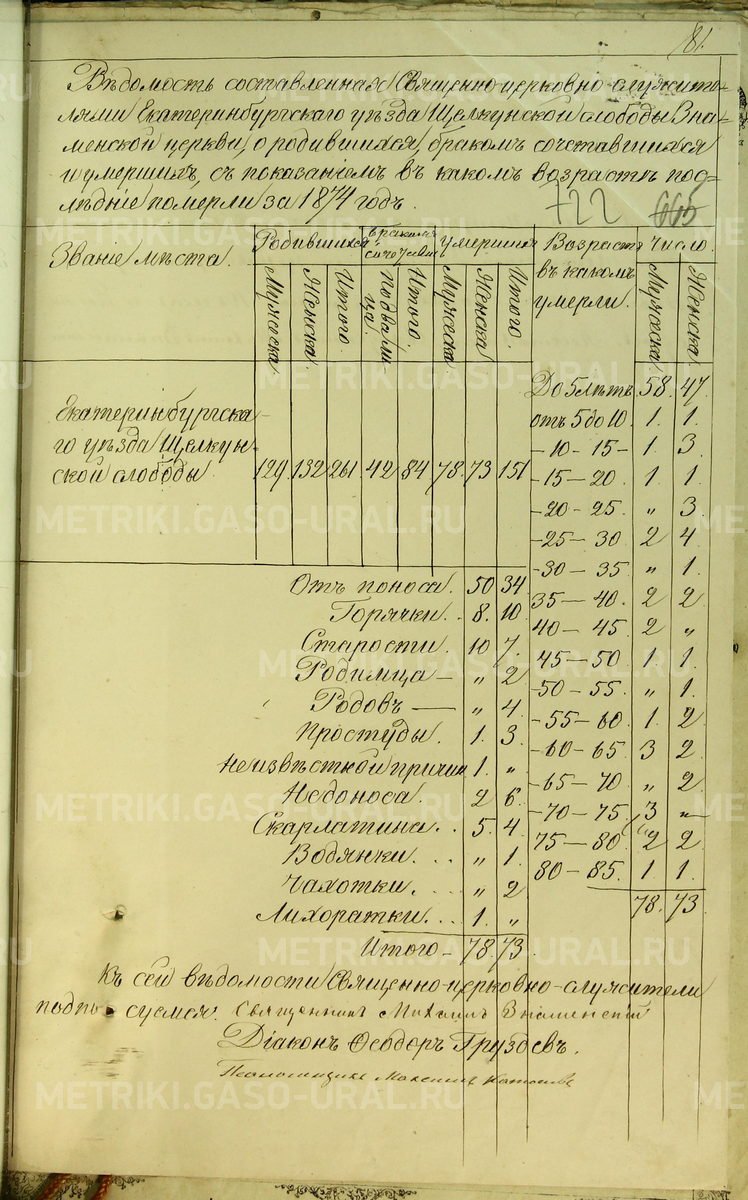 81.
Вѣдомость составленная Священно-церковно-служите-
лями Екатеринбургскаго уѣзда Щелкунской слободы Зна-
менской церкви, о родившихся, бракомъ сочетавшихся
и умершихъ, съ показаніемъ въ какомъ возрастѣ пос-
лѣдніе померли за 1874 годъ.
722 665
Званіе мѣста. Родившихся Бракомъ сочетавш. Умершихъ Возрастъ въ какомъ умерли. Число.
Мужеска Женска. Итого. Подвали-ца Итого. Мужеска Женска Итого. Мужеска Женска
Екатеринбургска-
го уѣзда Щелкун-
ской слободы 129 132 261 42 84 78 73 151
До 5 лѣтъ 58 47
отъ 5 до 10. 1. 1.
-10-15- 1 3
-15-20. 1 1
-20-25. „ 3
-25-30 2 4
-30-35 „ 1
35-40. 2 2
40-45 2 „
45-50 1 1
-50-55. „ 1.
-55-60 1 2
-60-65. 3 2
-65-70 „ 2
-70-75 3 „
75-80 2 2
80-85. 1 1.
78. 73
Отъ поноса. 50 34
Горячки. 8. 10
Старости. 10 7.
Родимца - „ 2
Родовъ - „ 4.
Простуды. 1. 3.
Неизвѣстной причин 1. „
Недоноса. 2 6.
Скарлатина.. 5. 4.
Водянки... „ 1.
Чахотки. „ 2
Лихоратки... 1. „
Итого - 78. 73.
Къ сей вѣдомости Священно-церковно-служители
подпи суемся. Священникъ Михаилъ Знаменскій
Діаконъ Ѳеодоръ Груздевъ.
METRIKI.GASO-URAL.RU